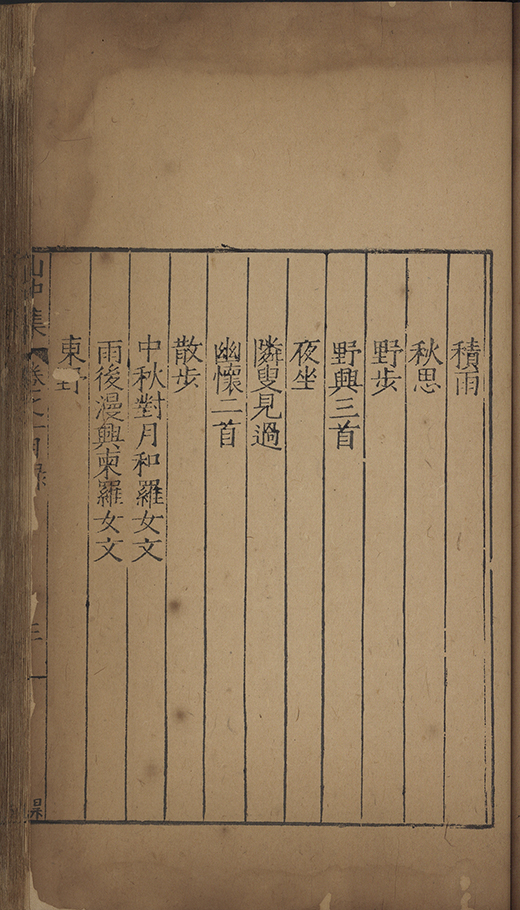 積雨
秋思
野步
野興三首
夜坐
隣叟見過
幽懷二首
散步
中秋對月和羅女文
雨後漫興柬羅女文
東野
山中集 卷之一目錄 三